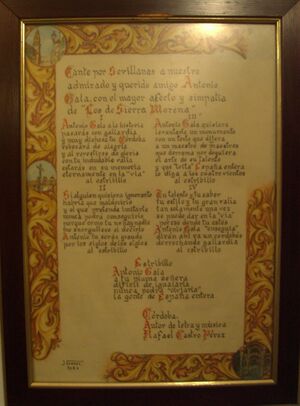 Cante por Sevillanas a nuestro
admirado y querido amigo Antonio
Gala, con el mayor afecto y simpatía
de "Los de Sierra Morena"
I
Antonio Gala a la historia
pasarás con gallardía
y muy dichosa tu Córdoba
rebosará de alegría
y al revestirse de gloria
en tu
estarás en su memoria
eternamente en la "vía"
al estribillo
II
Si alguien quisiera ignorarte
habría que maldecirlo
y el que pretenda imitarte
nunca podrá conseguirlo
porque como tu no hay nadie
me enorgullece al decirlo
Antonio tu serás grande
por los siglos de los siglos
al estribillo
III
Antonio Gala quisiera
levantarte un monumento
con un arte que altera
a un maestro de maestros
que Serrana nos dejara
el arte de su talento
y que "toita" España entera
lo diga a los cuatro vientos
al estribillo
IV
En talento y tu saber
tu estilo y tu gran valía
tan solamente una vez
se puede dar en la "vía"
preciso donde tu estés
Antonio Gala "enseguía"
dirán ahí va un cordobés
derrochando gallardía
al estribillo
Estribillo
Antonio Gala
a tu pluma señera
difícil de igualarla
nunca podrá "olvidarla"
la gente de España entera
Córdoba.
Autor de letra y música
Rafael Castro Pérez